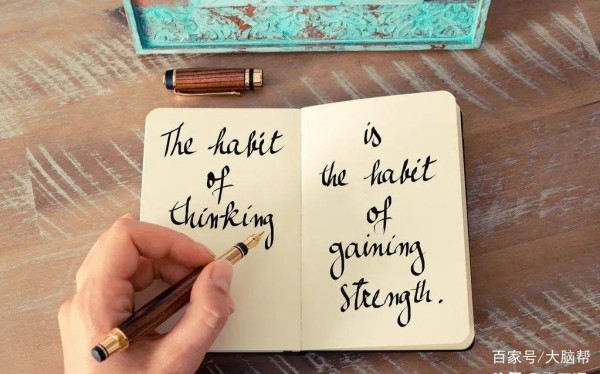 The habit
of
thinking
is
the habit
of
gaining
strength.
百家号/大脑帮